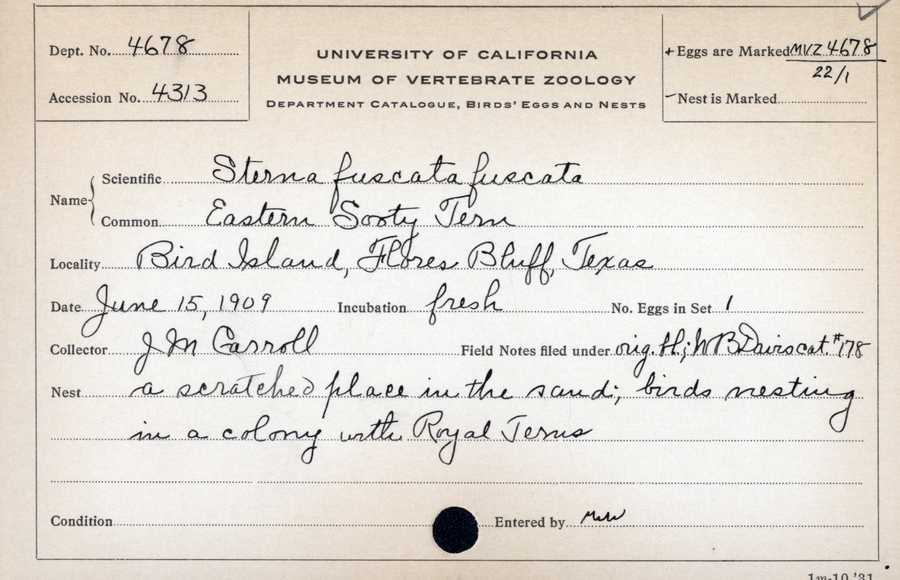 Dept. No. 4678
Accession No. 4313
UNIVERSITY OF CALIFORNIA
MUSEUM OF VERTEBRATE ZOOLOGY
DEPARTMENT CATALOGUE, BIRDS' EGGS AND NESTS
+ Eggs are Marked MVZ 4678
22/1
- Nest is Marked
Name { Scientific Sterna fuscata fuscata
Common Eastern Sooty Tern
Locality Bird Island, Flores Bluff, Texas
Date June 15, 1909 Incubation fresh No. Eggs in Set 1
Collector J M Carroll Field Notes filed under orig. ; W B Davis cat. #178
Nest a scratched place in the sand; birds nesting
in a colony with Royal Terns
Condition Entered by
1m-10,'31